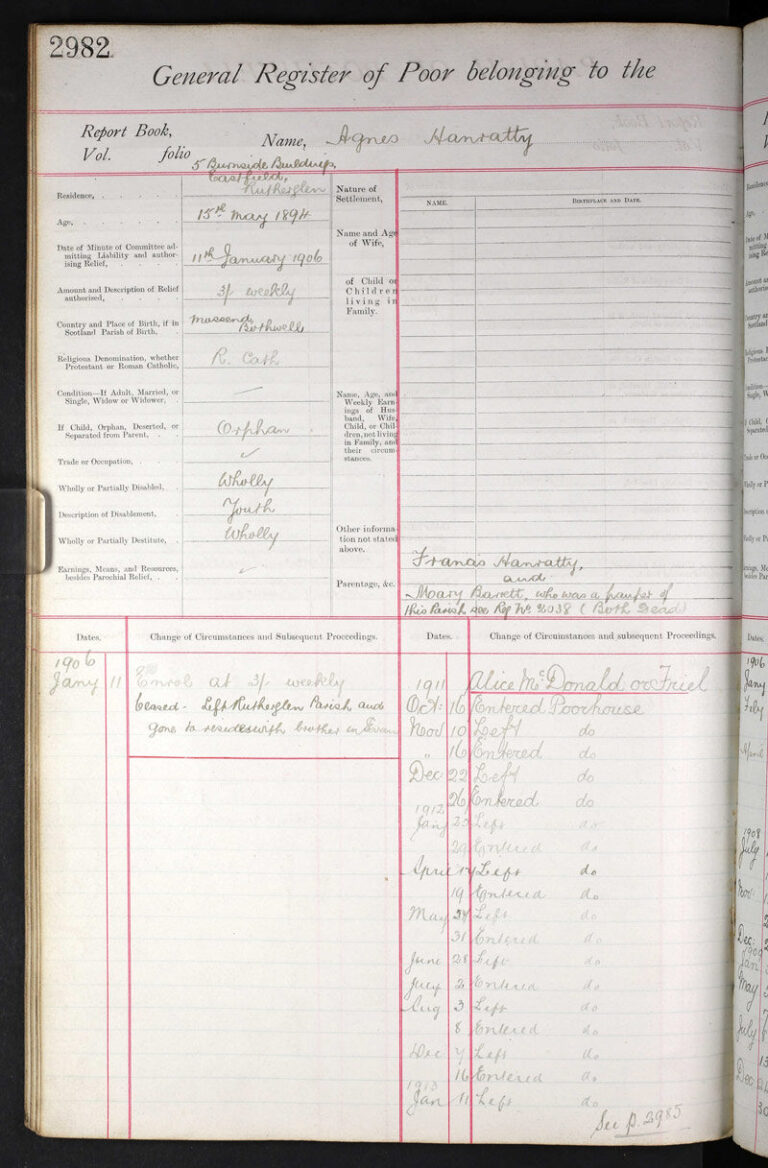 2982
General Register of Poor belonging to the
Report Book,
Vol. folio
Name, Agnes Hanratty
5 Burnside Buildings,
Eastfield,
Residence, Rutherglen
Age, 15th May 1894
Date of Minute of Committee ad-
mitting Liability and author-
ising Relief, 11th January 1906
Amount and Description of Relief
authorised, 3/- weekly
Country and Place of Birth, if in
Scotland Parish of Birth, Mossend Bothwell
Religious Denomination, whether
Protestant or Roman Catholic, R. Cath
Condition—If Adult, Married, or
Single, Widow or Widower, —
If Child, Orphan, Deserted, or
Separated from Parent, Orphan
Trade or Occupation, ✓
Wholly or Partially Disabled, Wholly
Description of Disablement, Youth
Wholly or Partially Destitute, Wholly
Earnings, Means, and Resources,
besides Parochial Relief, ✓
Nature of
Settlement,
Name and Age
of Wife,
of Child or
Children
living in
Family.
Name, Age, and
Weekly Earn-
ings of Hus-
band, Wife,
Child, or Chil-
dren, not living
in Family, and
their circum-
stances.
Other informa-
tion not stated
above.
Parentage, &c.
NAME. BIRTHPLACE AND DATE.
Francis Hanratty,
and
Mary Barrett, who was a pauper of
this Parish see Reg No 2038 (Both Dead)
Dates. Change of Circumstances and Subsequent Proceedings.
1906
Jany 11 Enrol at 3/- weekly
Ceased - Left Rutherglen Parish and
gone to reside with brother in
Dates. Change of Circumstances and subsequent Proceedings.
1911 Alice McDonald or Friel
Oct: 16 Entered Poorhouse
Nov 10 Left do
" 16 Entered do
Dec 22 Left do
26 Entered do
1912
Jany 23 Left do
29 Entered do
April 17 Left do
19 Entered do
May 24 Left do
31 Entered do
June 28 Left do
July 2 Entered do
Aug 3 Left do
8 Entered do
Dec 7 Left do
16 Entered do
1913
Jan 11 Left do
See p. 2985